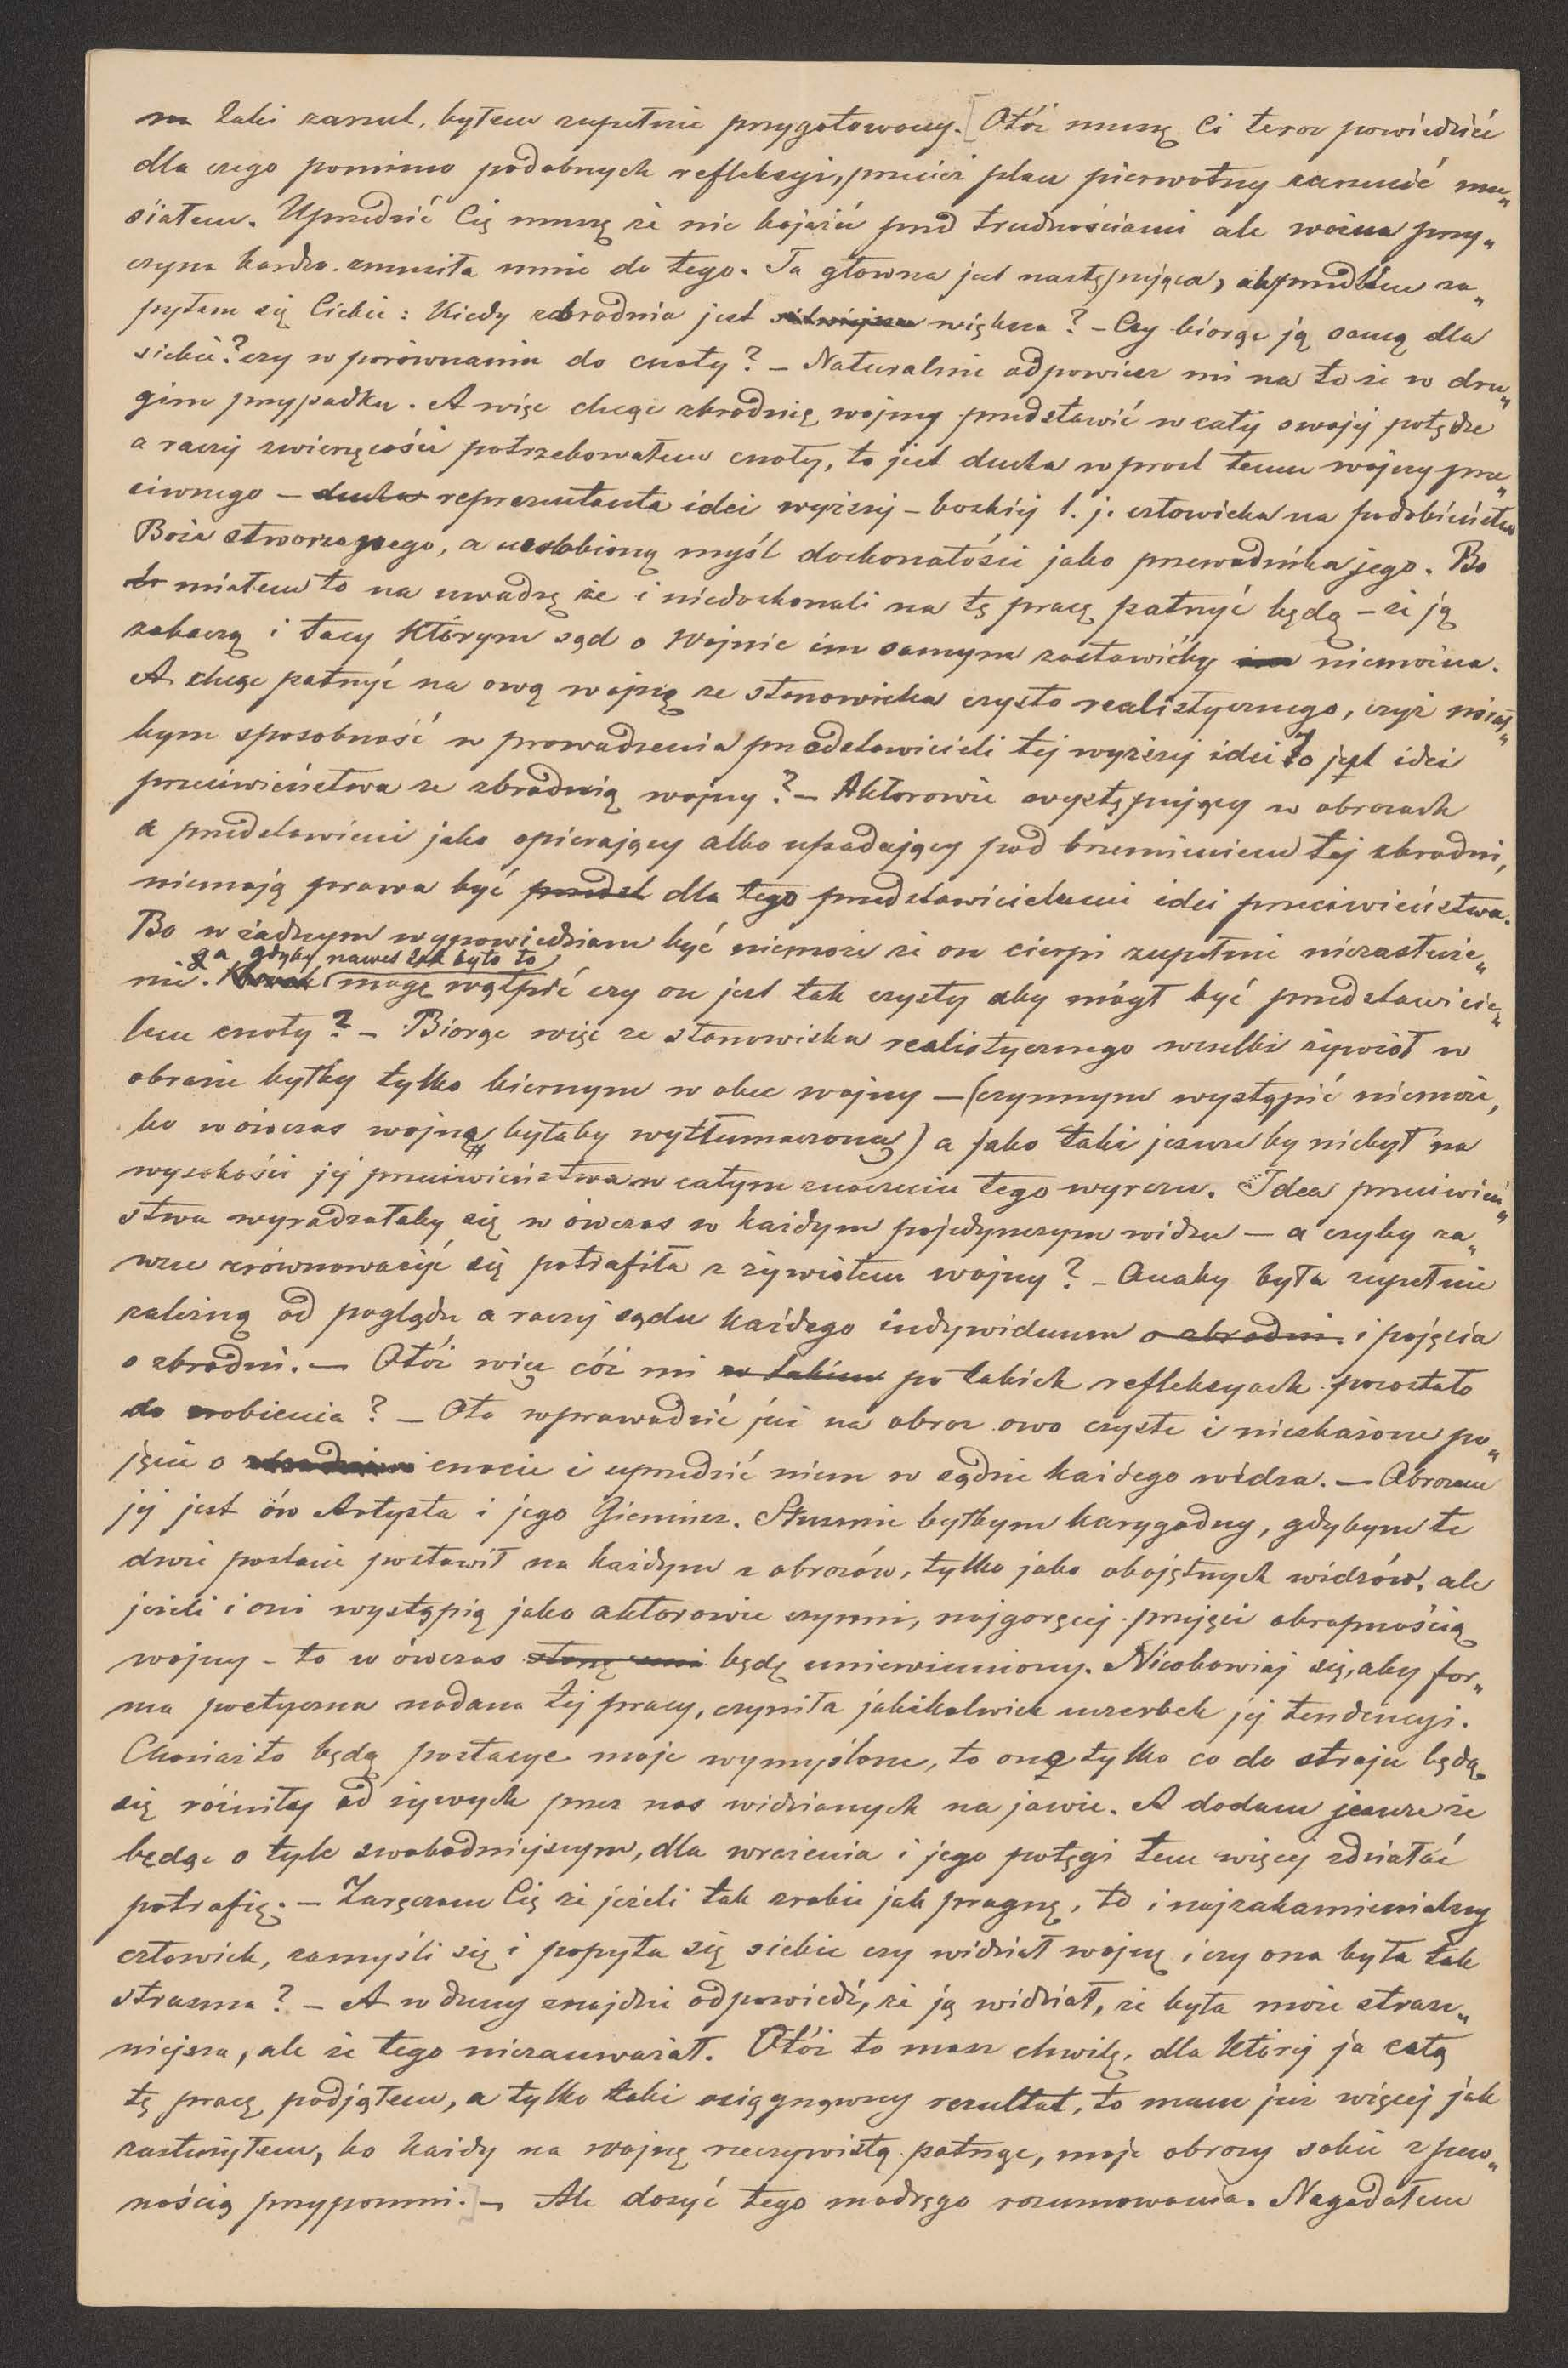 na taki zarzut, byłem zupełnie przygotowany. [Otóż muszę Ci teraz powiedzieć
dla czego pomimo podobnych refleksyi, przecież plan pierwotny zarzucić mu„
siałem. Uprzedzić Cię muszę że nie bojaźń przed trudnościami ale ważna przy„
czyna bardzo zmusiła mnie do tego. Ta głowna jest następująca, a wprzódbłem za„
pytam się Ciebie: Kiedy zbrodnia jest większa? – Czy biorąc ją samą dla
siebie? czy w porównaniu do cnoty? – Naturalnie odpowiesz mi na to że w dru„
gim przypadku. A więc chcąc zbrodnię wojny przedstawić w całej swojej potędze
a raczej zwierzęcości potrzebowałem cnoty, to jest ducha wprost temu wojny prze„
ciwnego – ducha reprezentanta idei wyższej – boskiej t. j. człowieka na podobieństwo
Boże stworzonego, a uosobioną myśl doskonałości jako przewodnika jego. Bo
to miałem to na uwadzę że i niedoskonali na tę pracę patrzyć będą – że ją
zobaczą i tacy którym sąd o Wojnie im samym zostawićby im niemożna.
A chcąc patrzyć na ową wojnę ze stanowiska czysto realistycznego, czyż miał„
bym sposobność w prowadzenia przedstawicieli tej wyższej idei to jest idei
przeciwieństwa ze zbrodnią wojny? – Aktorowie występujący w obrazach
a przedstawieni jako opierający albo upadający pod brzemieniem tej zbrodni,
niemają prawa być przedst dla tego przedstawicielami idei przeciwieństwa.
Bo w żadnym wypowiedziane być niemoże że on cierpi zupełnie niezasłuże„
ga gdyby nawet tak było to
nie. mogę wątpić czy on jest tak czysty aby mógł być przedstawicie„
lem cnoty? – Biorąc więc ze stanowiska realistycznego wszelki żywioł w
obrazie byłby tylko biernym w obec wojny – (czynnym wystąpić niemoże,
bo wówczas wojną byłaby wytłumaczoną) a jako taki jeszcze by niebył na
wysokości jej przeciwieństwa w całym znaczeniu tego wyrazu. Idea przeciwień„
stwa wyradzałaby się w ówczas w każdym pojedynczym widzu – a czyby za„
wsze zrównoważyć się potrafiła z żywiołem wojny? – Onaby była zupełnie
zależną od poglądu a raczej sądu każdego indywiduum o zbrodni i pojęcia
o zbrodni. – Otóż więc cóż mi w takim po takich refleksyach pozostało
do zrobienia? – Oto wprowadzić już na obraz owo czyste i nieskażone po„
jęcie o cnocie i uprzedzić niem w sądzie każdego widza. – Obrazem
jej jest ów Artysta i jego Gieniusz. Słusznie byłbym karygodny, gdybym te
dwie postacie postawił na każdym z obrazów, tylko jako obojętnych widzów, ale
jeżeli i oni wystąpią jako aktorowie czynni, najgoręcej przyjęci okropnością
wojny – to w ówczas będę uniewinniony. Nieobawiaj się, aby for„
ma poetyczna nadana tej pracy, czyniła jakikolwiek uszerbek jej tendencyi.
Chociaż to będą postacye moje wymyślone, to one tylko co do stroju będą
się różniły od żywych przez nas widzianych na jawie. A dodam jeszcze że
będąc o tyle swobodniejszym, dla wrażenia i jego potęgi tem więcej zdziałać
potrafię. – Zaręczam Cię że jeżeli tak zrobię jak pragnę, to i najzakamienialszy
człowiek, zamyśli się i popyta się siebie czy widział wojnę i czy ona była tak
straszna? – A w duszy znajdzie odpowiedź, że ją widział, że była może strasz„
niejsza, ale że tego niezauważał. Otóż to masz chwilę, dla której ja całą
tę pracę podjąłem, a tylko taki osiągnąwszy rezultat, to mam już więcej jak
zasłużyłem, bo każdy na wojnę rzeczywistą patrząc, moje obrazy sobie z pew„
nością przypomni.] – Ale dosyć tego mądrego rozumowania. Nagadałem